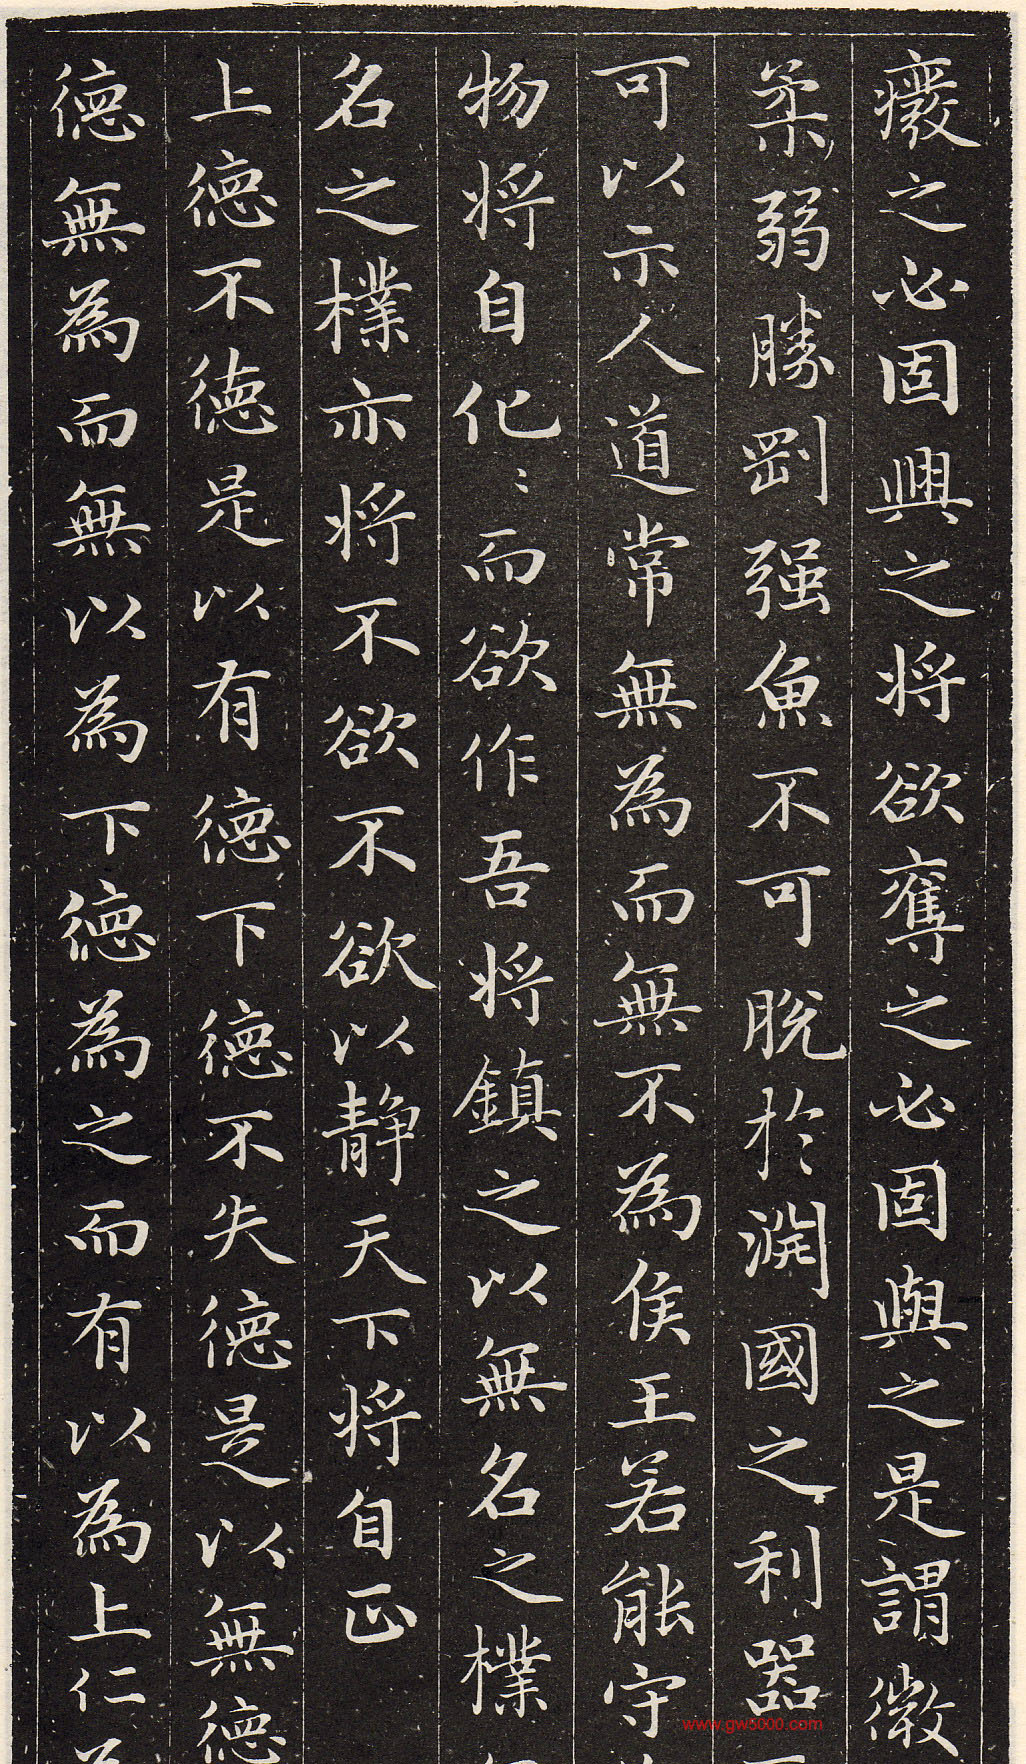 癈之必固興之将欲奪之必固與之是謂微
柔弱勝剛强魚不可脱於渊國之利器
可以示人道常無為而無不為侯王若能守
物将自化〻而欲作吾将鎮之以無名之樸
名之樸亦将不欲不欲以静天下将自正
上德不德是以有德下德不失德是以無德
德無為而無以為下德為之而有以為上仁
www.gw5000.com